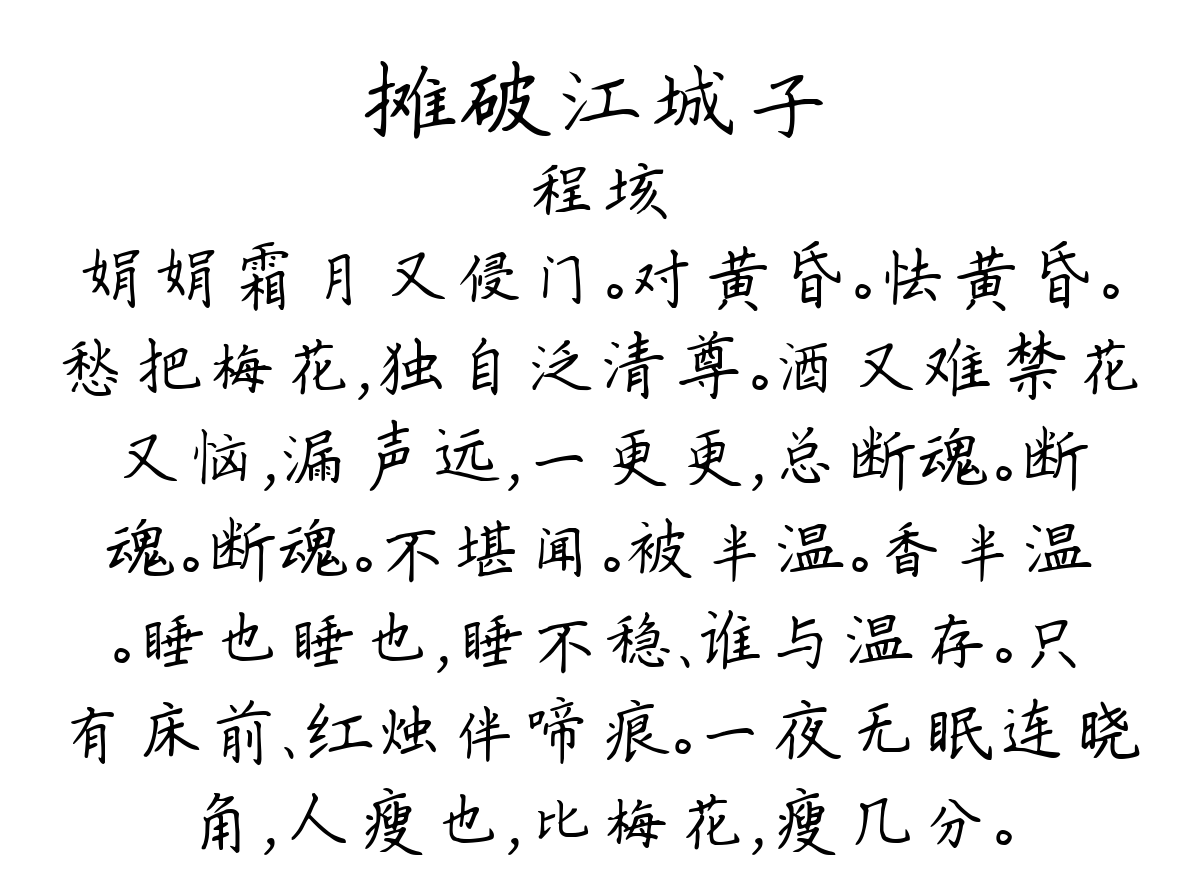 摊破江城子
程垓
娟娟霜月又侵门。对黄昏。怯黄昏。
愁把梅花,独自泛清尊。酒又难禁花
又恼,漏声远,一更更,总断魂。断
魂。断魂。不堪闻。被半温。香半温
。睡也睡也,睡不稳、谁与温存。只
有床前、红烛伴啼痕。一夜无眠连晓
角,人瘦也,比梅花,瘦几分。